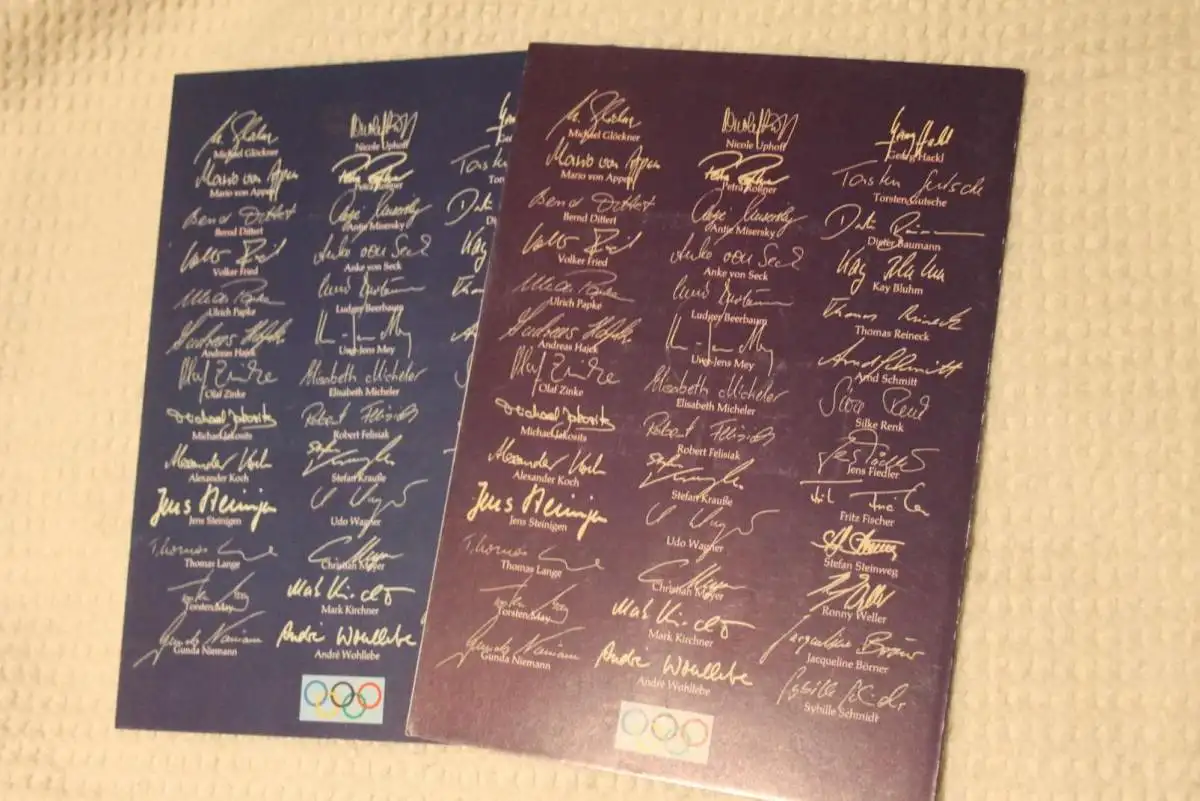 Michael Glöckner
Mario von Appen
Bernd Dittert
Volker Fried
Ulrich Papke
Andreas Hajek
Olaf Zinke
Michael Jakosits
Alexander Koch
Jens Steinigen
Thomas Lange
Torsten May
Gunda Niemann
Nicole Uphoff
Petra Roßner
Antje Misersky
Anke von Seck
Ludger Beerbaum
Uwe-Jens Mey
Elisabeth Micheler
Robert Felisiak
Stefan Krauße
Udo Wagner
Christian Meyer
Mark Kirchner
André Wohllebe
Michael Glöckner
Mario von Appen
Bernd Dittert
Volker Fried
Ulrich Papke
Andreas Hajek
Olaf Zinke
Michael Jakosits
Alexander Koch
Jens Steinigen
Thomas Lange
Torsten May
Gunda Niemann
Nicole Uphoff
Petra Roßner
Antje Misersky
Anke von Seck
Ludger Beerbaum
Uwe-Jens Mey
Elisabeth Micheler
Robert Felisiak
Stefan Krauße
Udo Wagner
Christian Meyer
Mark Kirchner
André Wohllebe
Georg Hackl
Torsten Gutsche
Dieter Baumann
Kay Bluhm
Thomas Reineck
Arnd Schmitt
Silke Renk
Jens Fiedler
Fritz Fischer
Stefan Steinweg
Ronny Weller
Jacqueline Börner
Sybille Schmidt